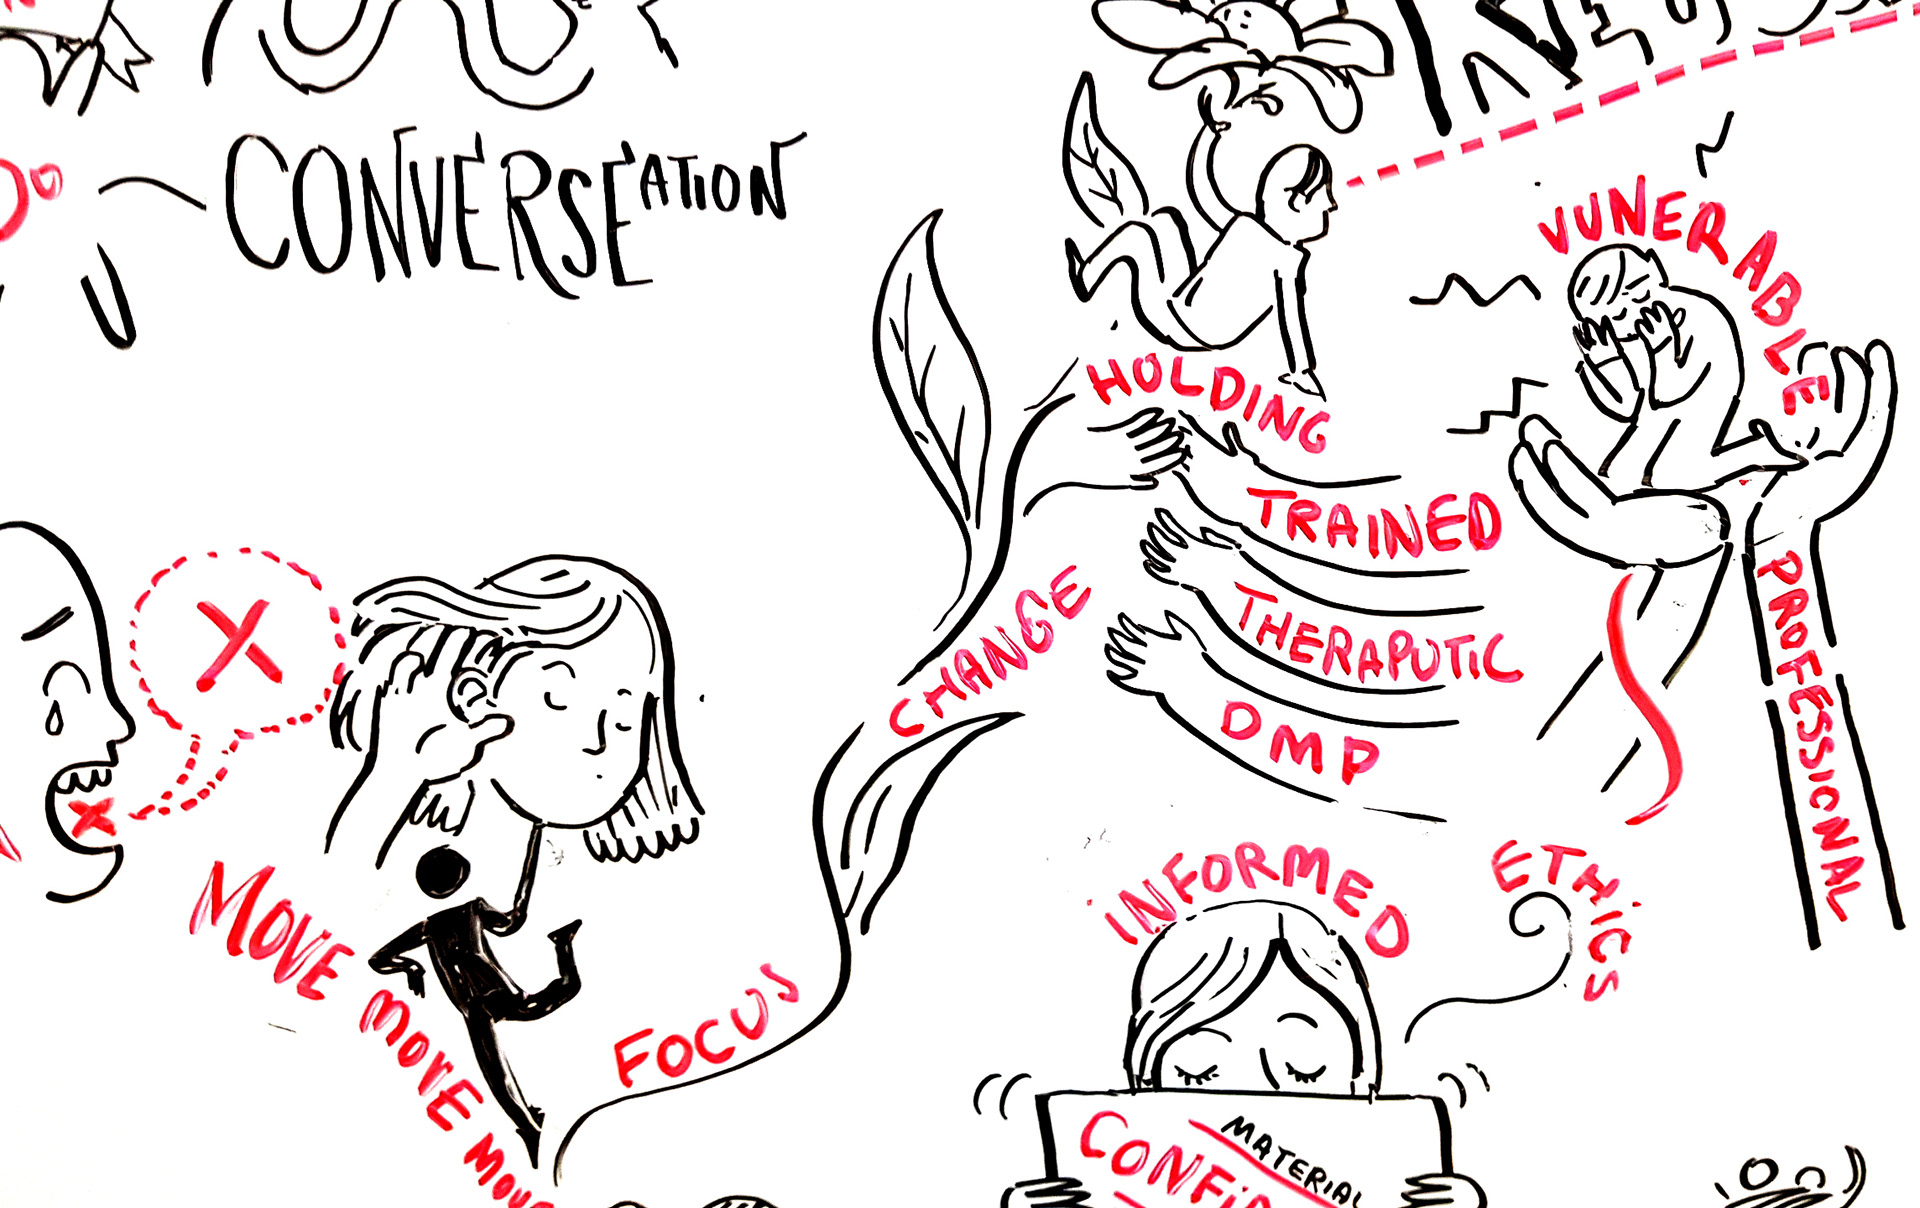 CONVERSEATION
VUNERABLE
HOLDING
TRAINED
THERAPUTIC
DMP
CHANGE
PROFESSIONAL
X
X
MOVE MOVE MOVE
FOCUS
INFORMED
ETHICS
MATERIAL